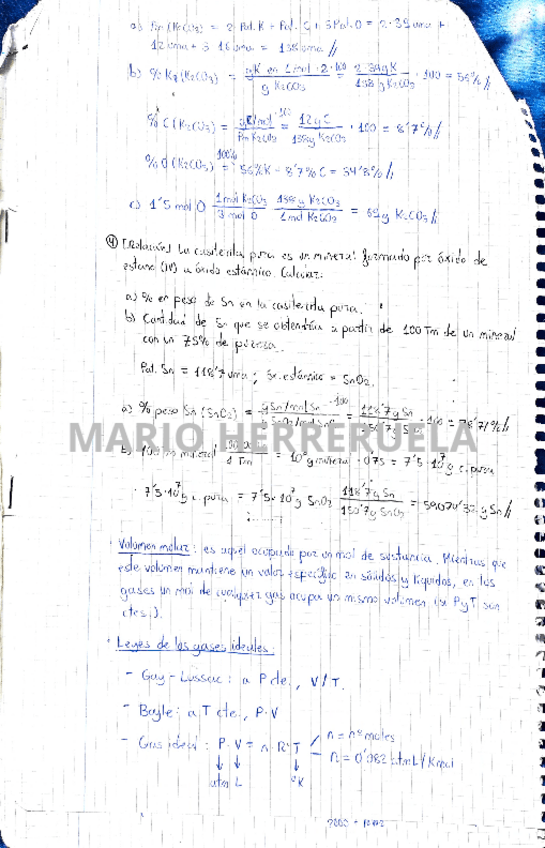 a) Pm (K₂CO₃) = 2·Pat. K + Pat. C + 3 Pat. O = 2·39 uma +
12 uma + 3·16 uma = 138 uma //
b) % K₂ (K₂CO₃) = gK en 1mol·2·100 / g K₂CO₃ = 2·39gK / 138 g K₂CO₃ · 100 = 56% //
% C (K₂CO₃) = ·100 / Pm K₂CO₃ = 12g C / 138g K₂CO₃ · 100 = 8'7% //
% O (K₂CO₃) = 100% - 56% K - 8'7% C = 34'8% //
c) 1'5 mol O 1mol K₂CO₃ / 3 mol O 138g K₂CO₃ / 1mol K₂CO₃ = 69g K₂CO₃ //
④ La casiterita pura es un mineral formado por óxido de
estaño (IV) u óxido estánnico. Calcular:
a) % en peso de Sn en la casiterita pura.
b) Cantidad de Sn que se obtendría a partir de 100 Tm de un mineral
con un 75% de pureza.
Pat. Sn = 118'7 uma ; estánnico = SnO₂
a) % peso Sn (SnO₂) = g Sn/mol Sn ·100 = 118'7g Sn · 100 = 78'71% //
MARIO HERRERUELA
b) 100 Tm mineral / 1 Tm = 10⁸ g mineral · 0'75 = 7'5·10⁷ g c. pura
7'5·10⁷ g c. pura = 7'5·10⁷ g SnO₂ 118'7g Sn / 150'7g SnO₂ = g Sn //
· Volumen molar: es aquel ocupado por un mol de sustancia. Mientras que
este volumen mantiene un valor específico en sólidos y líquidos, en los
gases un mol de cualquier gas ocupa un mismo volumen (si P y T son
ctes.).
· Leyes de los gases ideales:
- Gay-Lussac: a P cte., V/T.
- Boyle: a T cte., P·V
- Gas ideal: P·V = n·R·T n = nº moles
= 0'082 atm L / K mol
↓ ↓ ↓
atm L °K